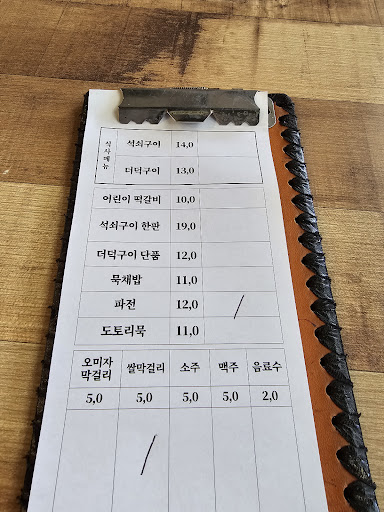 식사메뉴
석쇠구이 14,0
더덕구이 13,0
어린이 떡갈비 10,0
석쇠구이 한판 19,0
더덕구이 단품 12,0
묵채밥 11,0
파전 12,0 /
도토리묵 11,0
오미자 막걸리 쌀막걸리 소주 맥주 음료수
5,0 5,0 5,0 5,0 2,0
/